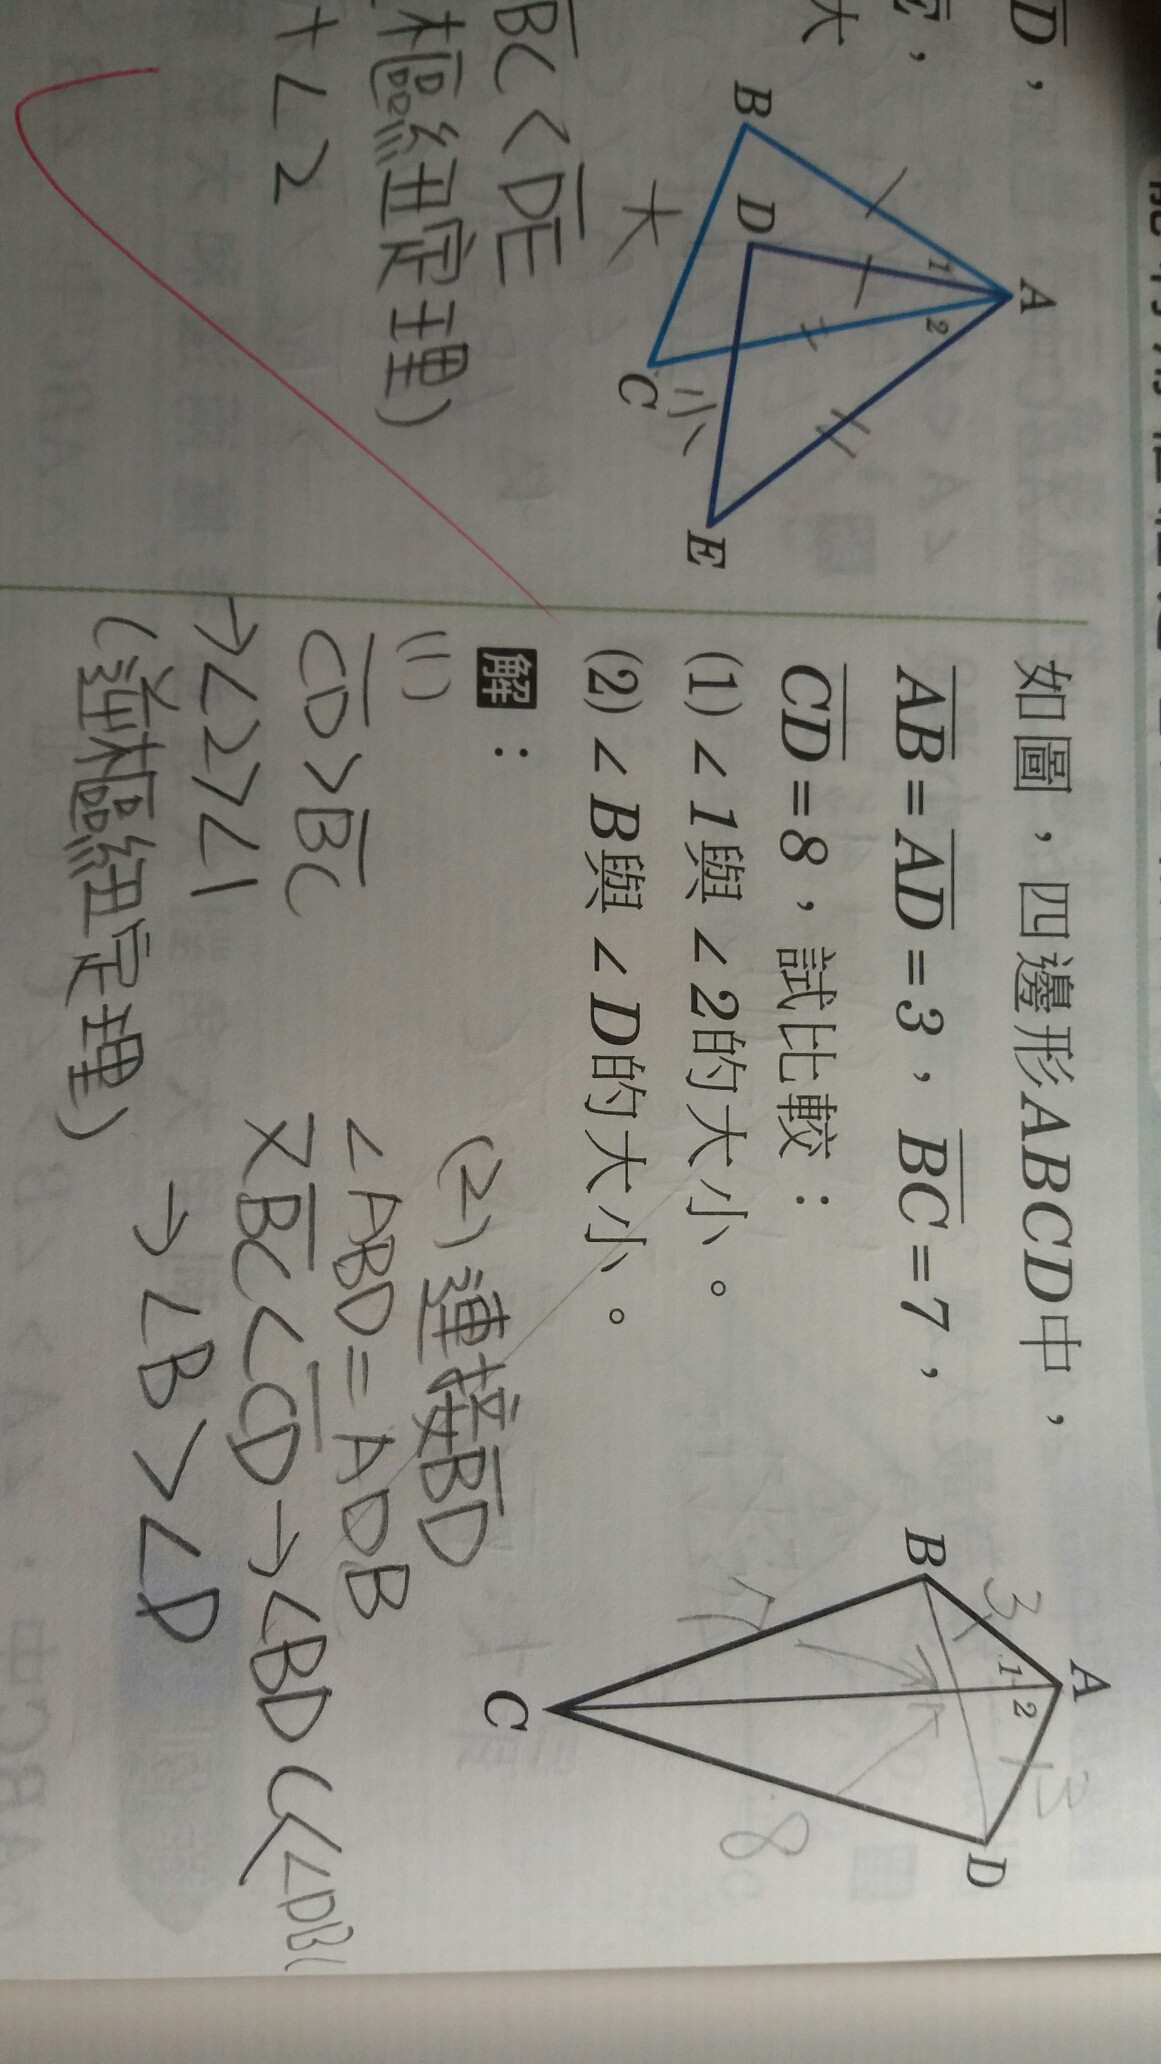 D，
E，
大
A
B
D
1
2
C
E
小
大
BC < DE
樞紐定理)
+∠2
如圖，四邊形ABCD中，
AB=AD=3，BC=7，
CD=8，試比較：
(1)∠1與∠2的大小。
(2)∠B與∠D的大小。
A
B
1
2
D
C
3
3
7
8
解：
(1)
CD>BC
→∠2>∠1
(逆樞紐定理)
(2)連接BD
∠ABD=ADB
又BC<CD→∠BDC<∠DBC
→∠B>∠D